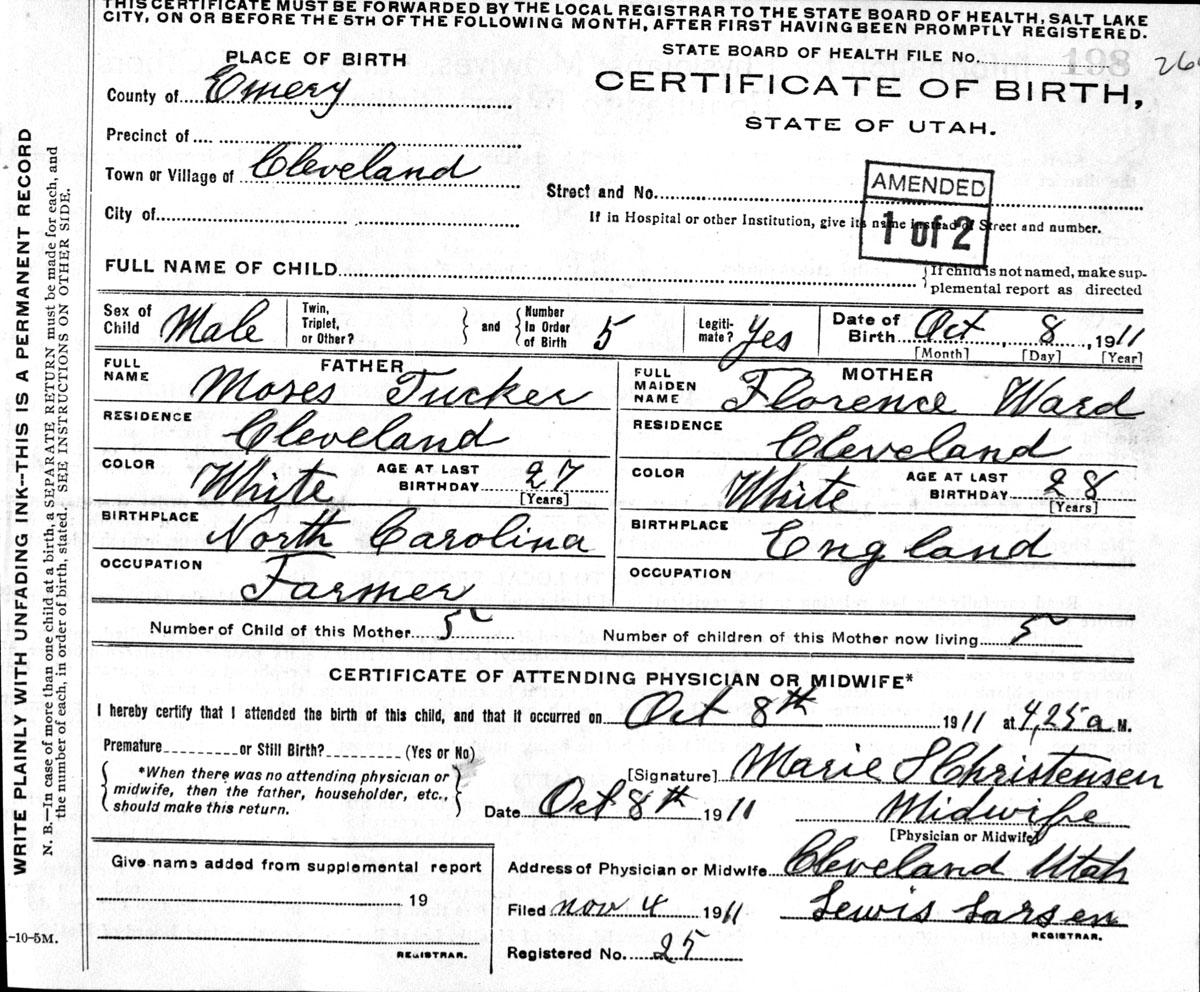 THIS CERTIFICATE MUST BE FORWARDED BY THE LOCAL REGISTRAR TO THE STATE BOARD OF HEALTH, SALT LAKE
CITY, ON OR BEFORE THE 5TH OF THE FOLLOWING MONTH, AFTER FIRST HAVING BEEN PROMPTLY REGISTERED.
PLACE OF BIRTH
STATE BOARD OF HEALTH FILE No. 198
County of Emery
CERTIFICATE OF BIRTH,
STATE OF UTAH.
Precinct of
Town or Village of Cleveland
Street and No.
AMENDED
1 of 2
City of
If in Hospital or other Institution, give its name instead of Street and number.
FULL NAME OF CHILD
If child is not named, make sup-
plemental report as directed
Sex of Child Male Twin, Triplet, or Other? and Number In Order of Birth 5 Legiti-mate? Yes Date of Birth Oct 8, 1911
[Month] [Day] [Year]
FATHER
FULL NAME Moses Tucker
RESIDENCE Cleveland
COLOR White AGE AT LAST BIRTHDAY 27
[Years]
BIRTHPLACE North Carolina
OCCUPATION Farmer
MOTHER
FULL MAIDEN NAME Florence Ward
RESIDENCE Cleveland
COLOR White AGE AT LAST BIRTHDAY 28
[Years]
BIRTHPLACE England
OCCUPATION
Number of Child of this Mother 5 Number of children of this Mother now living 5
CERTIFICATE OF ATTENDING PHYSICIAN OR MIDWIFE*
I hereby certify that I attended the birth of this child, and that it occurred on Oct 8th 1911 at 4,25 a M.
Premature or Still Birth? (Yes or No)
*When there was no attending physician or
midwife, then the father, householder, etc.,
should make this return.
[Signature] Marie S Christensen
Date Oct 8th 1911 Midwife
[Physician or Midwife]
Give name added from supplemental report
19
REGISTRAR.
Address of Physician or Midwife Cleveland Utah
Filed nov 4 1911 Lewis Larsen
REGISTRAR.
Registered No. 25
-10-5M.
WRITE PLAINLY WITH UNFADING INK--THIS IS A PERMANENT RECORD
N. B.—In case of more than one child at a birth, a SEPARATE RETURN must be made for each, and
the number of each, in order of birth, stated. SEE INSTRUCTIONS ON OTHER SIDE.